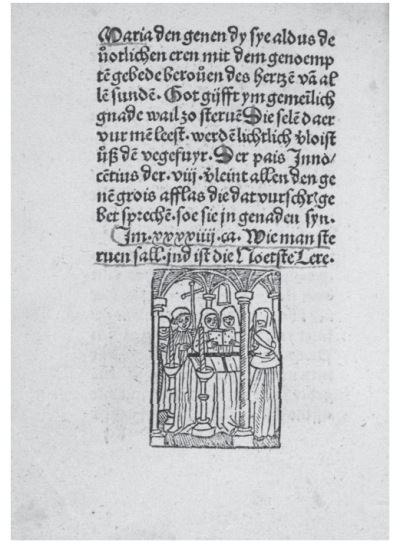 Maria den genen dy sye aldus de
uͦotlichen eren mit dem genoemp
tē gebede beroüen des hertzē vā al
lē sundē. Got gijfft ym gemeīlich
gnade wail zo steruē Die selē daer
vur mē leest. werdē lichtlich vloist
uͦß dē vegefuyr. Der pais Inno⸗
cētius der. viij. vleint allen den ge
nē grois afflas die dat vurschr ge
bet sprechē. soe sie in genaden syn.
Im. xxxxiiij. ca. Wie man ste
ruen sall. ind ist die Noetste Lere.